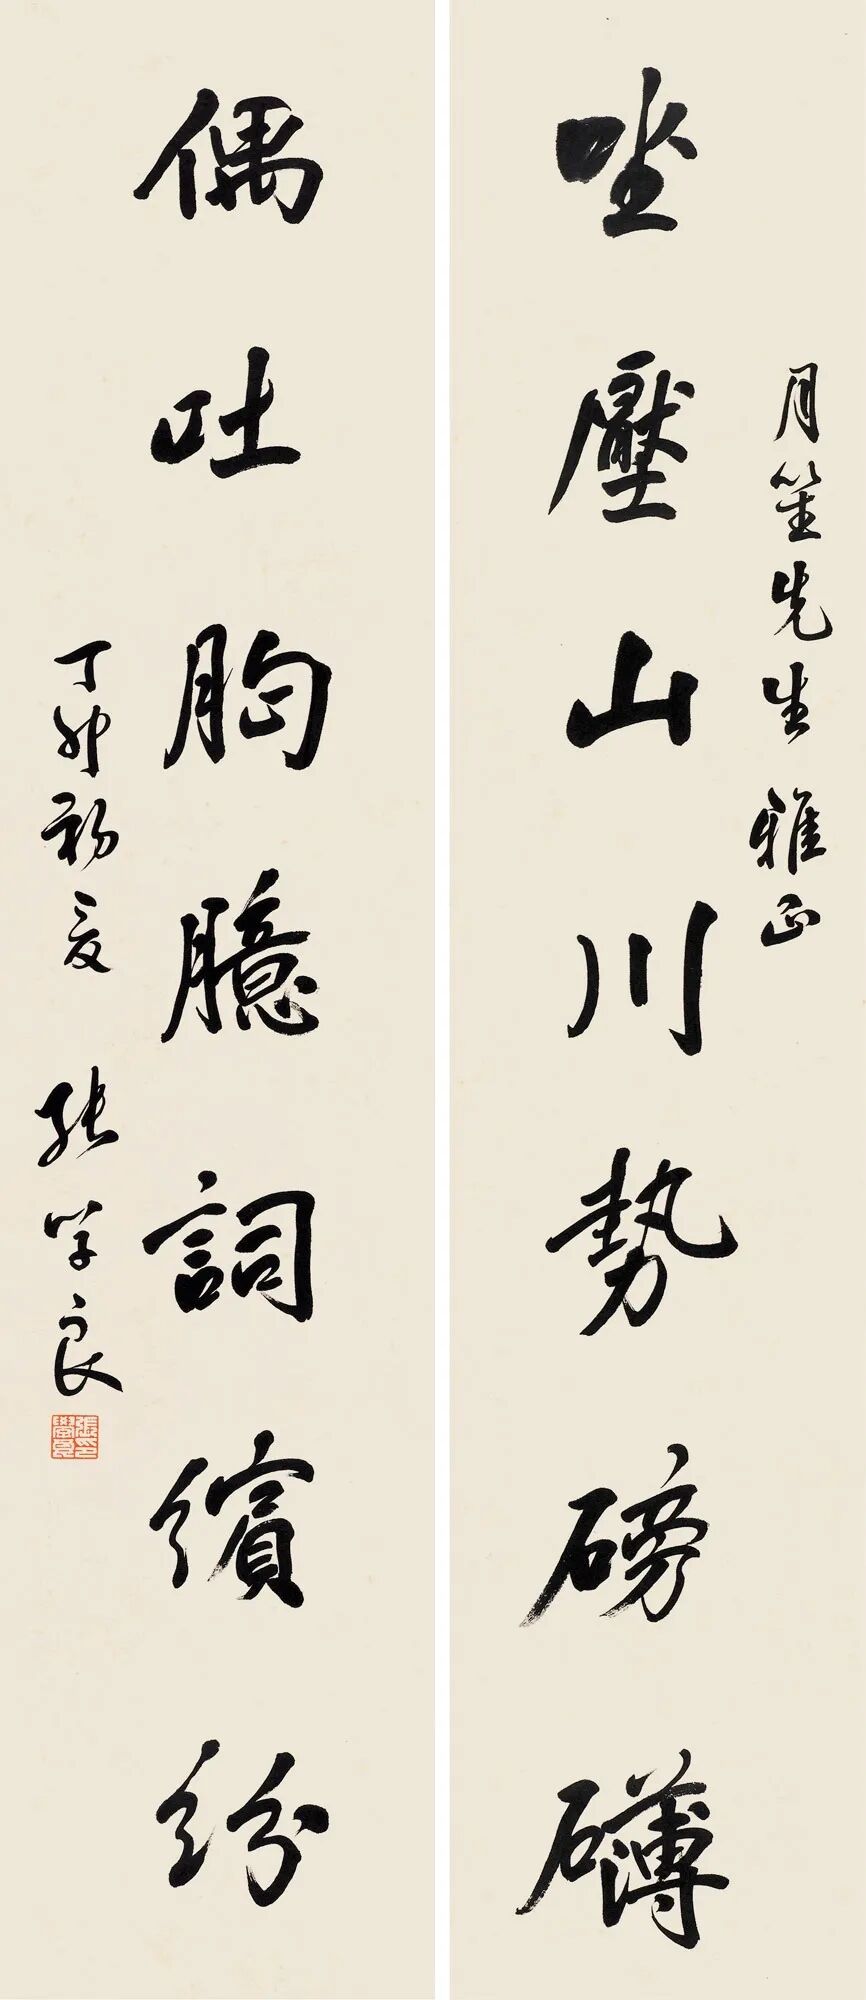 月笙先生雅正
坐壓山川勢磅礴
偶吐胸臆詞繽紛
丁卯初夏 張学良
張學良印